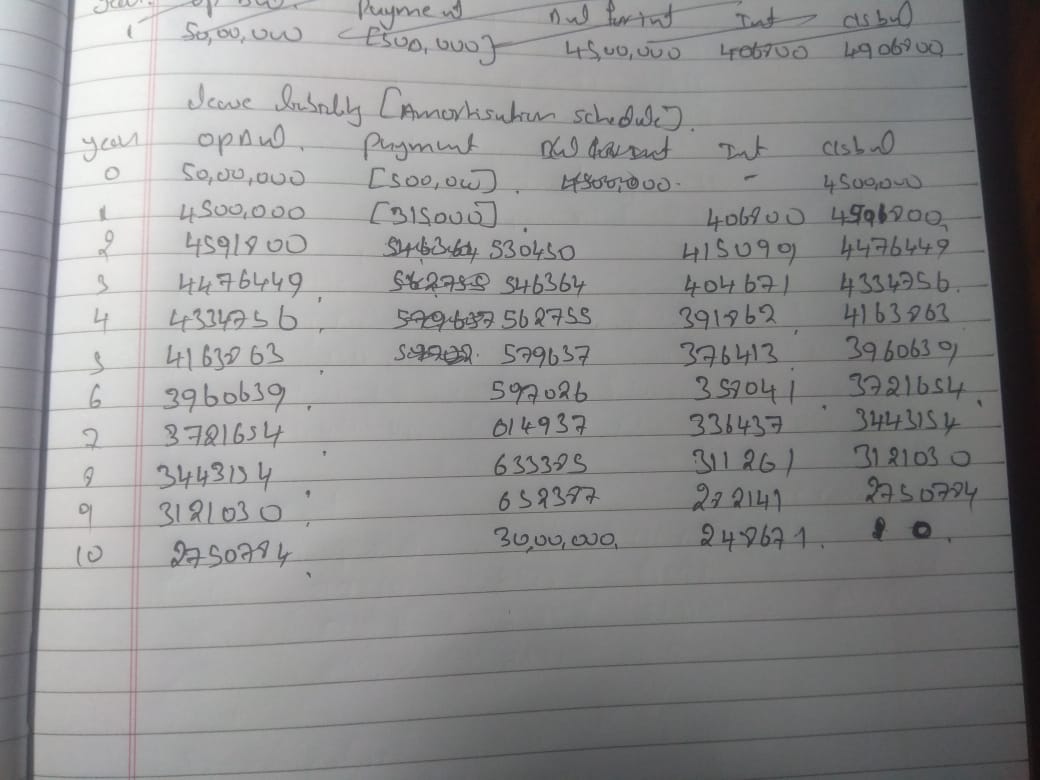 year. op bal. Payment Bal for int Int clsbal
1 50,00,000 [500,000] 4500,000 406800 4906800
lease liability [Amortisation schedule].
year opbal. payment Bal for int Int clsbal
0 50,00,000 [500,000]. 4500,000. - 4500,000
1 4500,000 [315000]. 406800 4591800
2 4591800 546364 530450 415099 4476449
3 4476449 562755 546364 404671 4334756
4 4334756 579637 562755 391862 4163863
5 4163863 579637 376413 3960639
6 3960639 597026 358041 3721654
7 3721654 614937 336437 3443154
8 3443154 633385 311261 3121030
9 3121030 652387 282141 2750784
10 2750784 30,00,000. 248671. 0.